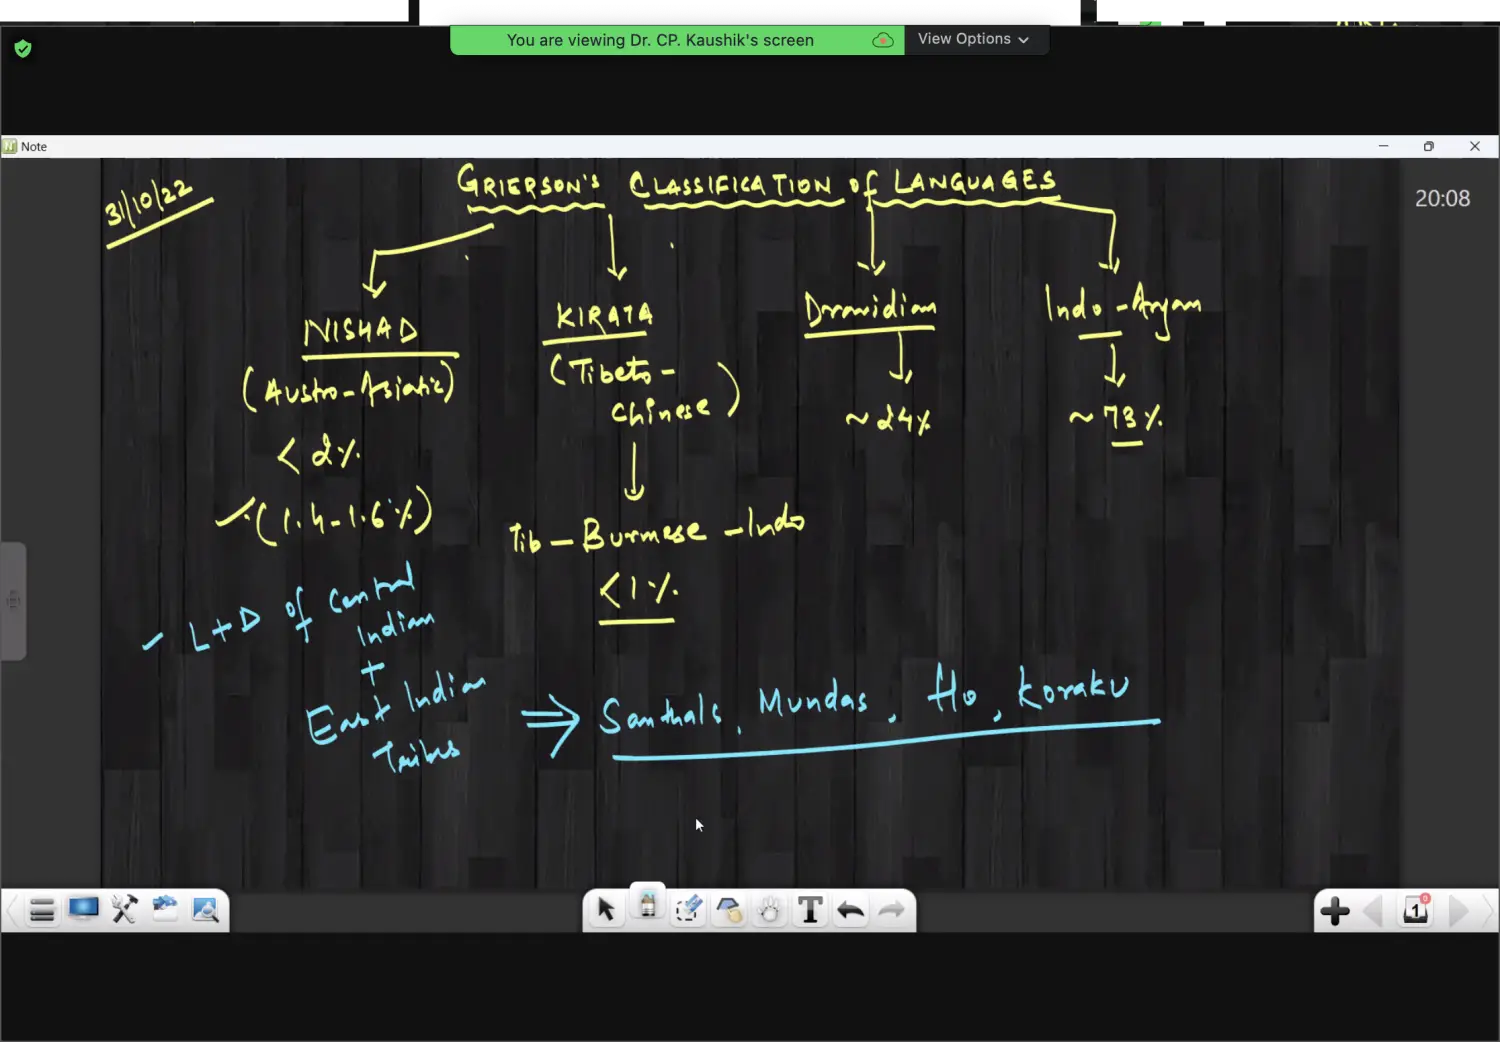 You are viewing Dr. CP. Kaushik's screen
View Options
Note
31/10/22
GRIERSON'S CLASSIFICATION of LANGUAGES
20:08
NISHAD
(Austro-Asiatic)
< 2%
(1.4-1.6%)
KIRATA
(Tibeto-
Chinese)
Tib-Burmese-Indo
<1%
Dravidian
~24%
Indo-Aryan
~73%
L+D of Central
Indian
+
East Indian
Tribes
⇒ Santhals, Mundas, Ho, Koraku
T
1
0